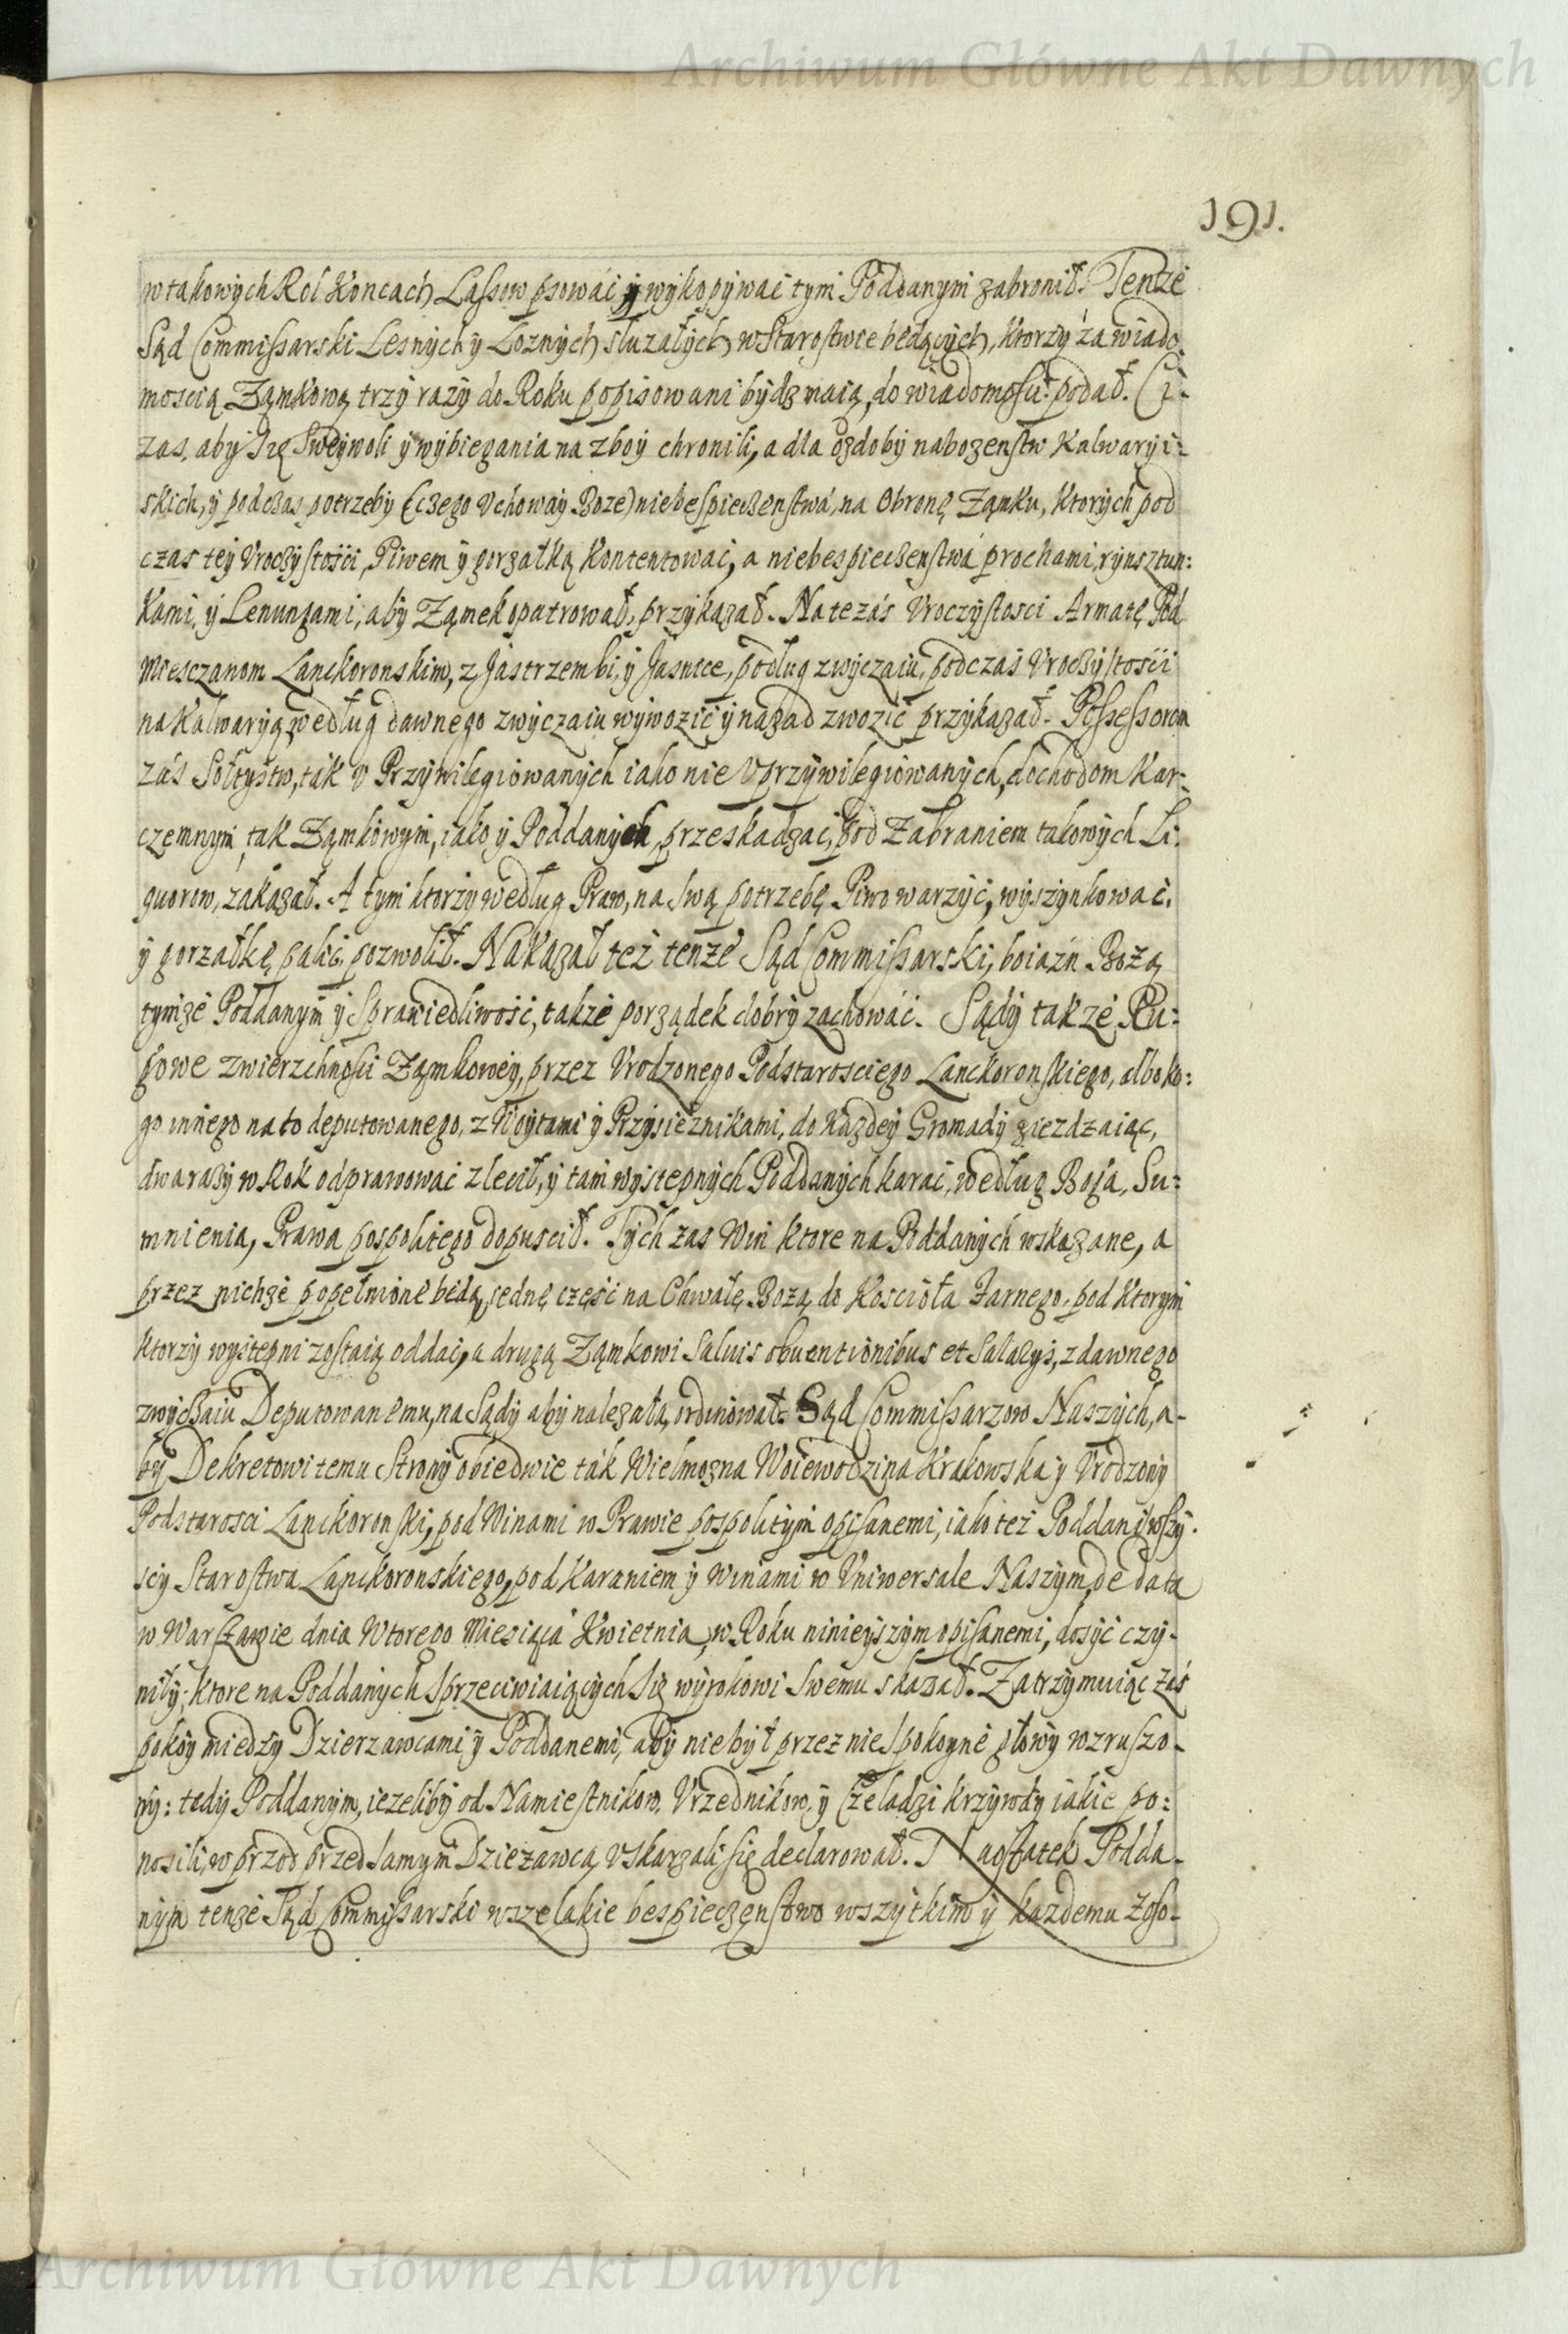 Archiwum Główne Akt Dawnych
191.
w takowych Rol Koncach Lassow psowáć y wykopywać tym Poddanym zabronił. Tenże
Sąd Commissarski Lesnych y Loznych sluzałych w Starostwie będących, ktorzy za wiado-
moscią Zamkową trzy razy do Roku popisowani bydz maią, do wiadomosci podał. Ci-
zas, aby się Sweywoli y wybiegania na zboy chronili, a dla ozdoby nabozenstw Kalwaryi-
skich, y podczas potrzeby (czego Vchoway Boze) niebespieczenstwá, na Obronę Zamku, ktorych pod
czas tey Vroczystości, Piwem y gorzałką Kontentować, a niebespieczenstwá prochami, rynsztun:
kami, y Lenungami, aby Zamek opatrował, przykazał. Na te zás Vroczystosci Armatę Pod
Miesczanom Lanckoronskim, z Jastrzembi, y Jasnice, podług zwyczaiu, podczas Vroczystości
na Kalwaryą według dawnego zwyczaiu wywozić y nazad zwozić przykazał. Possessorom
zás Sołtystw, ták V Przywilegiowanych iako nie Vprzywilegiowanych, dochodom Kar-
czemnym, tak Zamkowym, iako y Poddanych, przeskadzać, pod Zabraniem takowych Li-
quorow, zakazał. A tym ktorzy według Praw, na swą potrzebę Piwo warzyć, wyszynkować,
y gorzałkę palić, pozwolił. Nakazał też tenże Sąd Commissarski, boiaźń Bożą
tymże Poddanym y Sprawiedliwość, także porządek dobry zachowáć. Sądy także Ru-
gowe zwierzchności Zamkowey, przez Vrodzonego Podstarosciego Lanckoronskiego, albo ko:
go innego na to deputowanego, z Woytami y Przysiężnikami, do każdey Gromady ziezdzaiąc,
dwa razy w Rok odprawować zlecił, y tam występnych Poddanych karać, według Boga, Su-
mnienia, Prawa pospolitego dopuscił. Tych zas Win ktore na Poddanych wskazane, a
przez nichże popełnione będą, jednę część na Chwałę Bożą do Koscioła Farnego, pod ktorym
ktorzy występni zostaią oddać, a drugą Zamkowi Saluis obuentionibus et Salarys, z dawnego
zwyczaiu Deputowanemu, na Sądy aby nalezała, ordinował. Sąd Commissarzow Naszych, a-
by Dekretowi temu Strony obiedwie ták Wielmożna Woiewodzina Krakowska y Vrodzony
Podstarosci Lanckoronski, pod Winami w Prawie pospolitym opisanemi, iako też Poddani wszy-
scy Starostwa Lanckoronskiego, pod Karaniem y winami w Vniwersale Naszym, de data
w Warszawie dnia Wtorego Miesiąca Kwietnia, w Roku ninieyszym opisanemi, dosyć czy-
niły, ktore na Poddanych sprzeciwiaiących się wyrokowi swemu skazał. Zatrzymuiąc zaś
pokoy miedzy Dzierzawcami y Poddanemi, aby niebył przez niespokoyne głowy wzruszo-
ny: tedy Poddanym, iezeliby od Namiestnikow, Vrzednikow, y Czeladzi krzywdy iakie po:
nosili, w przod przed samym Dzieżawcą Vskarzali się declarował. Naostatek Podda-
nym tenże Sąd Commissarski wszelakie bespieczenstwo wszytkim y każdemu zoso-
Archiwum Główne Akt Dawnych